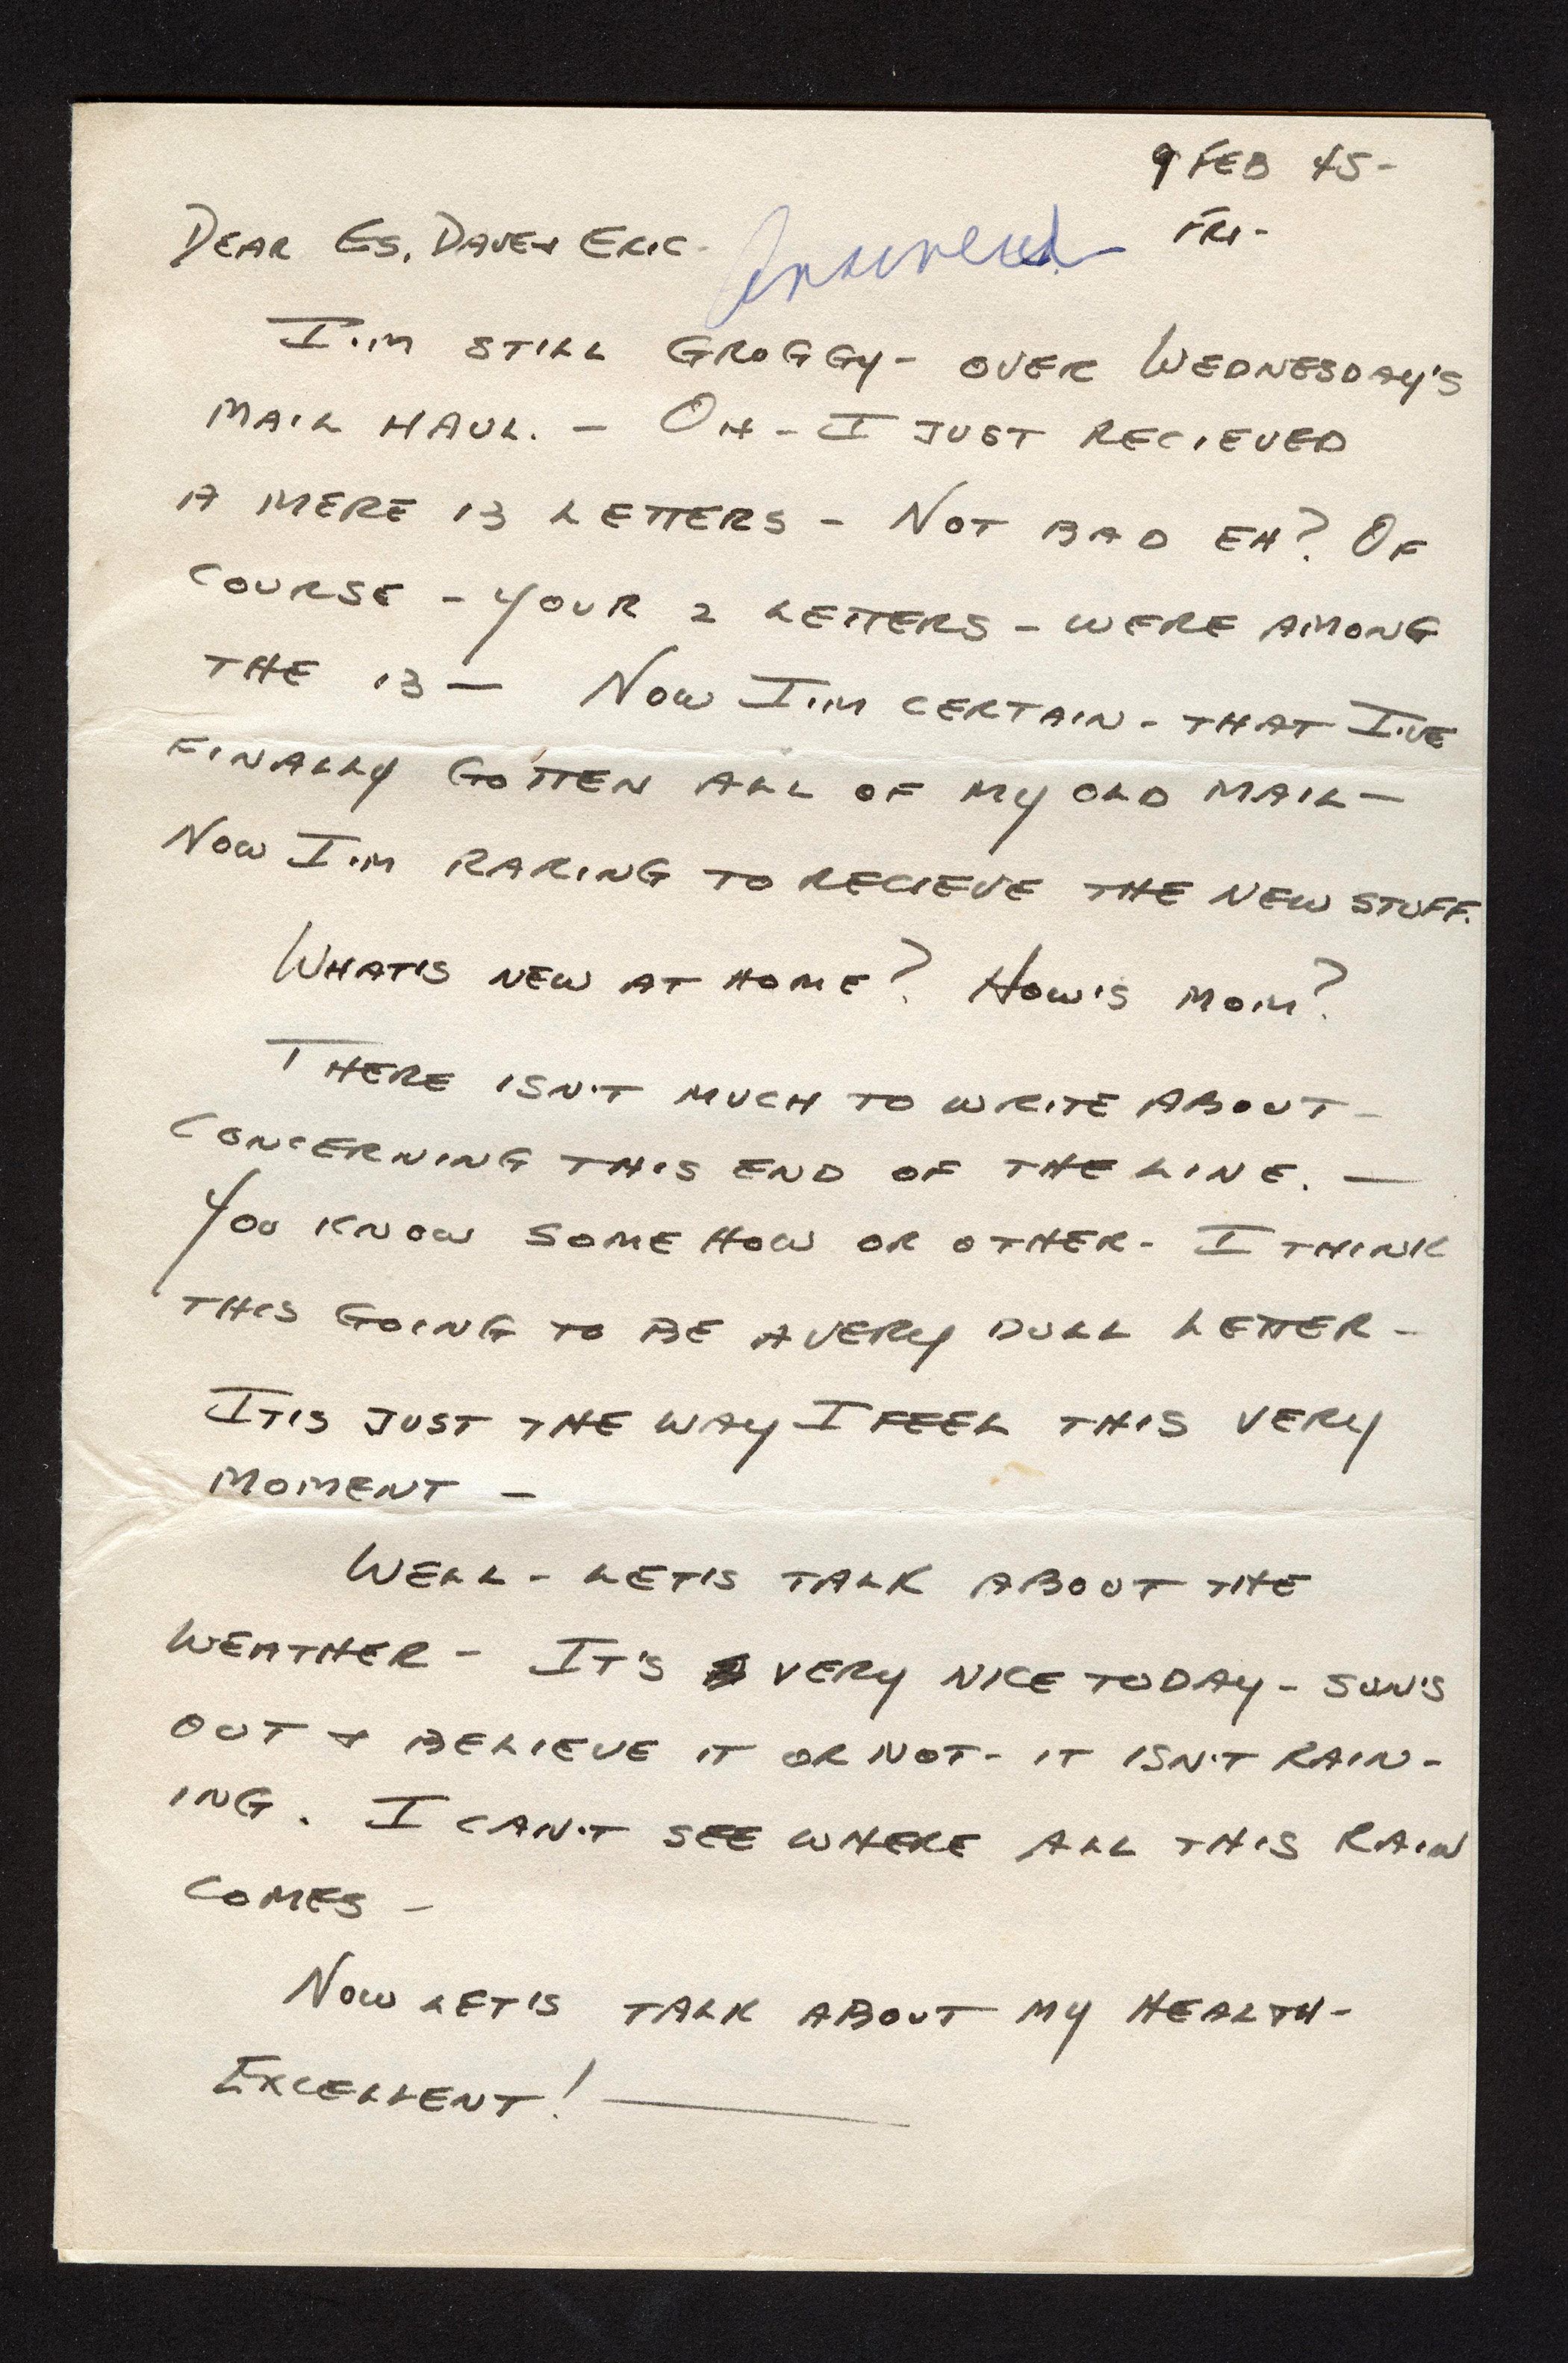 9 FEB 45-
FRI-
DEAR ES, DAVE & ERIC-
Answered
I'M STILL GROGGY- OVER WEDNESDAY'S
MAIL HAUL. - OH - I JUST RECIEVED
A MERE 13 LETTERS - NOT BAD EH? OF
COURSE - YOUR 2 LETTERS - WERE AMONG
THE 13 — NOW I'M CERTAIN - THAT I'VE
FINALLY GOTTEN ALL OF MY OLD MAIL —
NOW I'M RARING TO RECIEVE THE NEW STUFF.
WHAT'S NEW AT HOME? HOW'S MOM?
THERE ISN'T MUCH TO WRITE ABOUT -
CONCERNING THIS END OF THE LINE. —
YOU KNOW SOME HOW OR OTHER - I THINK
THIS GOING TO BE A VERY DULL LETTER -
IT'S JUST THE WAY I FEEL THIS VERY
MOMENT -
WELL - LET'S TALK ABOUT THE
WEATHER - IT'S VERY NICE TODAY - SUN'S
OUT & BELIEVE IT OR NOT - IT ISN'T RAIN-
ING. I CAN'T SEE WHERE ALL THIS RAIN
COMES -
NOW LET'S TALK ABOUT MY HEALTH -
EXCELLENT! —